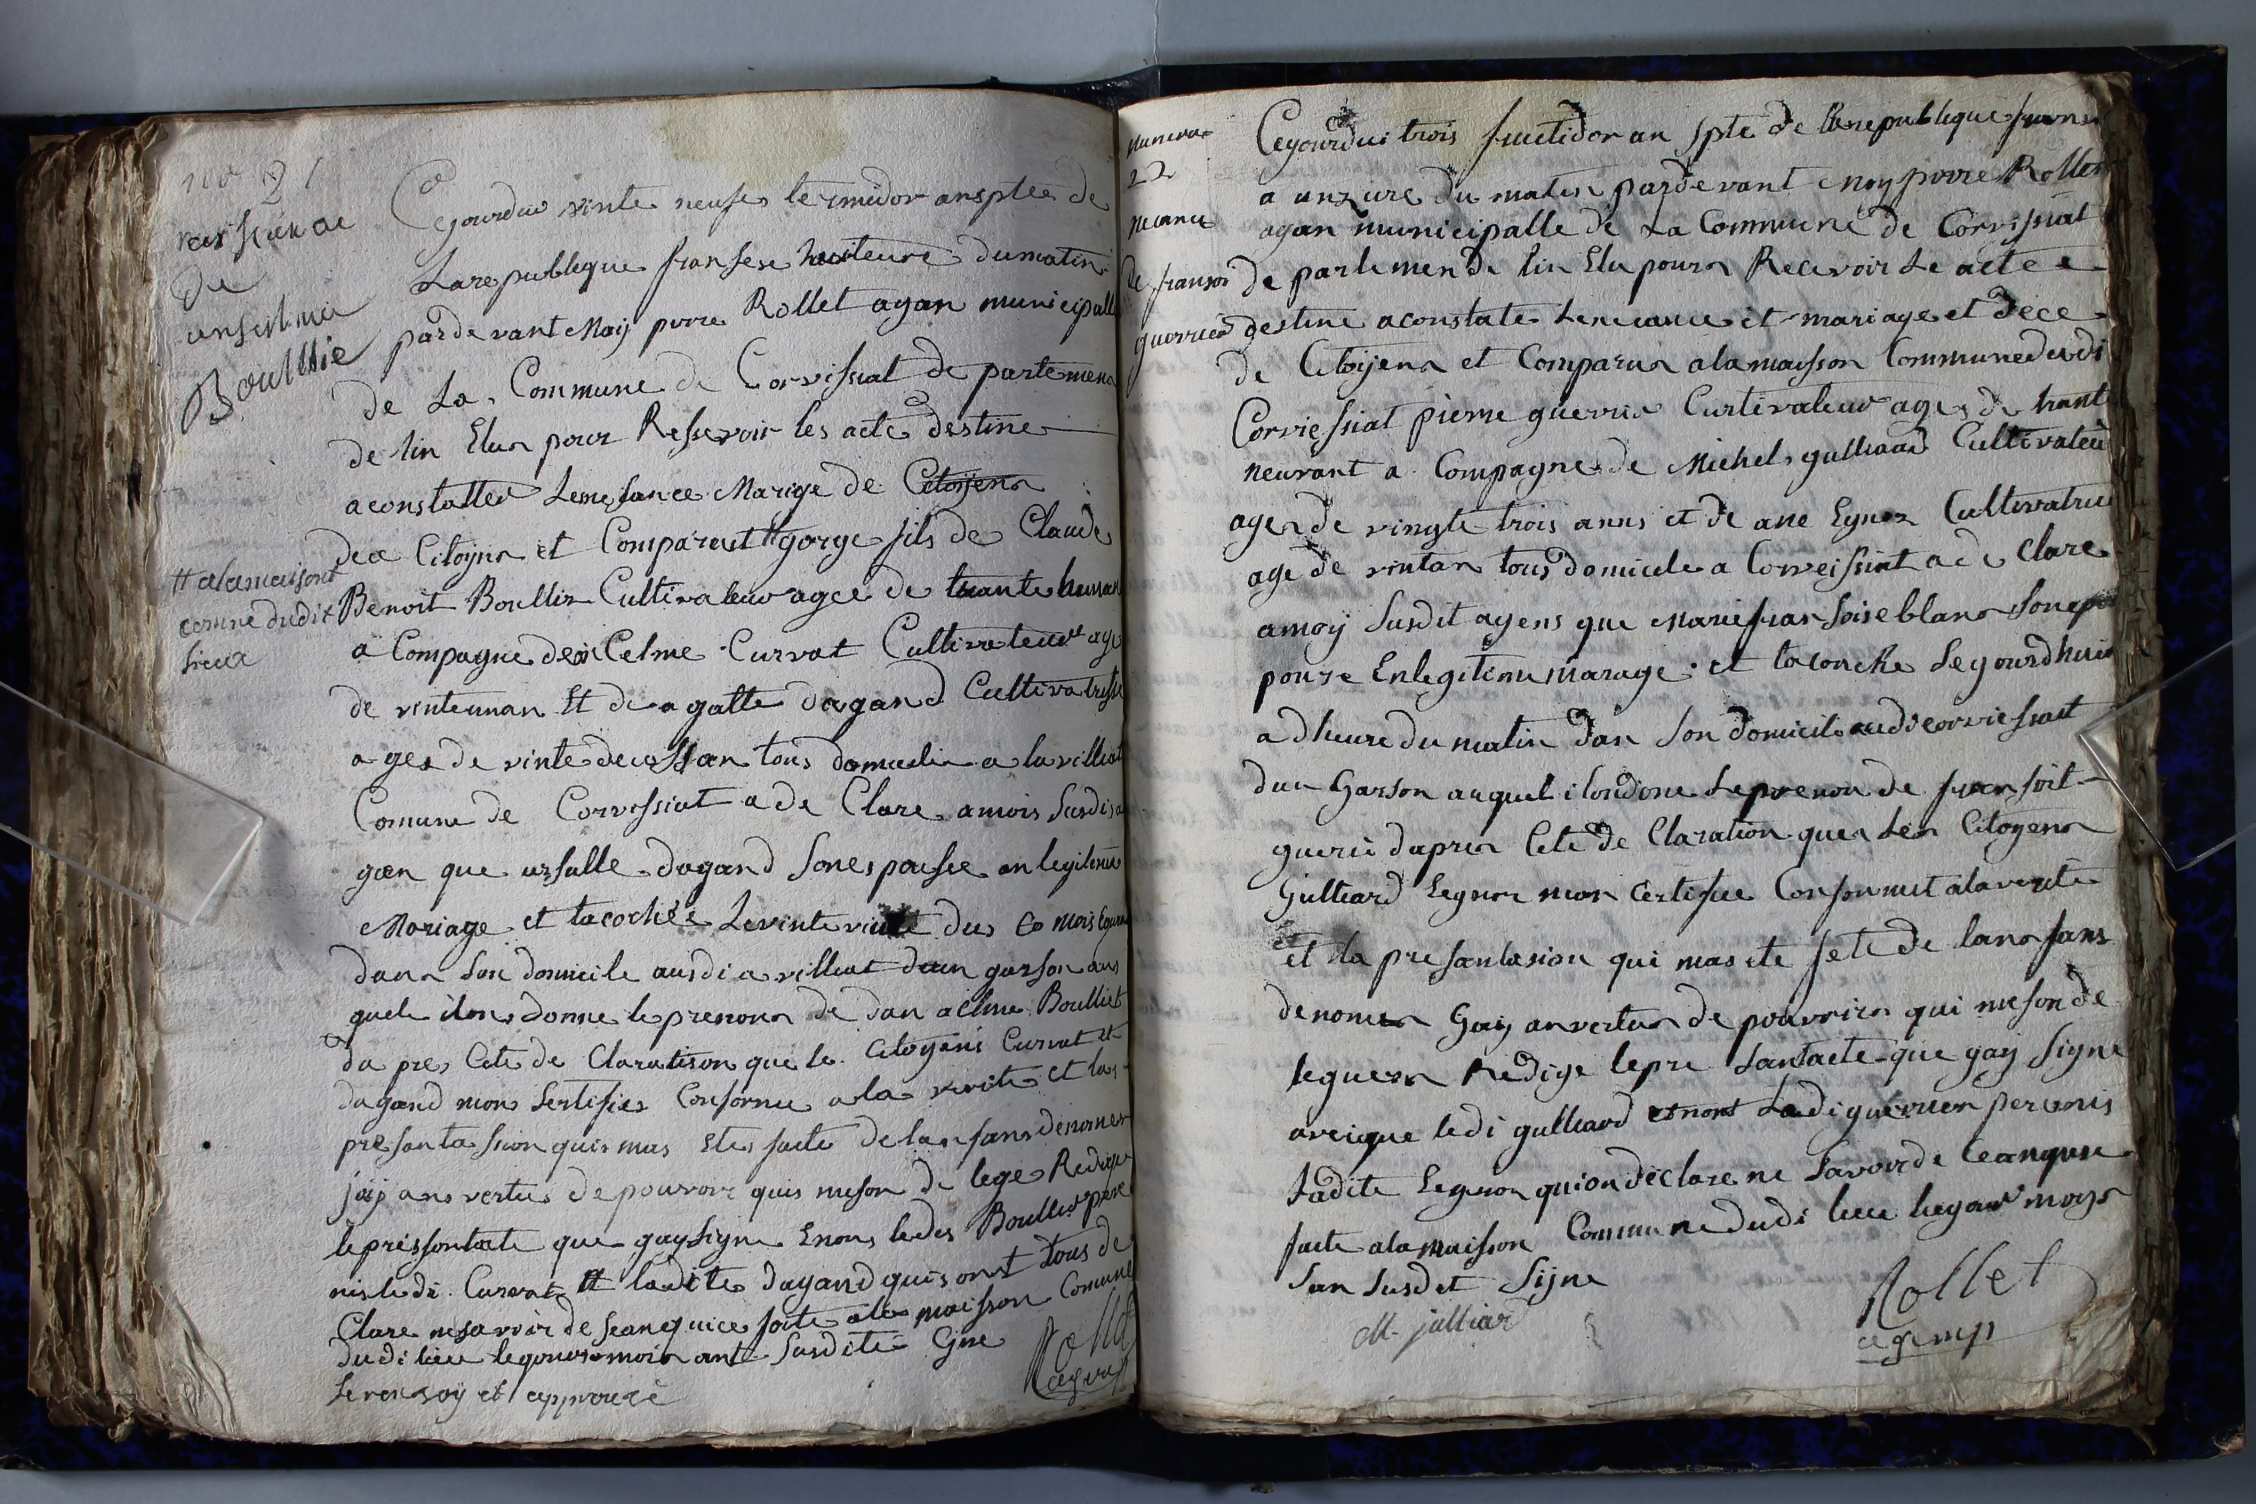 no 21
nes sianse
de
anselme
Boulllie
Cejourdui vinte neufes termidor ansptes de
Larepubleque fransese huiteure dumatin
pardevant Moij pirre Rollet agan municipalle
de La Commune de Corvissiat de partemena
de lin Elua pour Ressevoir les acte destine
aconstatter Lenesance Marige de Citoijena
dece Citoijna et Compareut # gorge fils de Claude
# alamaisont
comune dudit
lieux
Benoit Boullie Cultivateur agee de trante huisan
a Compagne de aCelme Curvat Cultivateur age
de vinteunan Et de agatte dagand Cultivatrisse
agea de vinte deussan tous domicilie a la villiat
Comune de Corvissiat a de Clare amois Susdis a
gan que ursulle dagand Sonespousee an legiteme
Mariage et tacochée Levinte du Ce mois Coura
dana Son domicile ausdi a villiat dun garson aus
quele ilons donne leprenoma de dan aClme Boulliet
da pres Cete de Claratison que le Citoyens Curvat et
dagand mons Sertifies Conforme a la verite et las
presontassion quis mas Etes faite delanfans denomer
jaij ans vertus depouvoir quis meson de lege Redige
lepressontacte que gaysigne Enons ledis Boullie pere
nis ledi Curvat et ladite dagand quisont tous de
Clare nesavoir de seanquice faite ala maisson Comune
dudi lieu legour moia ant Susdite Gne
Le ranvoij et approuvé
Rollet
agmp
numero
22
necance
de fransoi
guerrier
Cejourdui trois fructidor an spte de Larepublegue franse
a unzure du maten pardevant moy pirre Rollet
agan municipalle de La Commune de Corvissiat
de partemen de lin Elu poura Recevoir Le acte
destine aconstate Lenecance et mariage et dece
de Citoijena et Comparua alamaisson Commune dudi
Corviessiat pierre guerrie Curtivateur ages de trant
neuvant a Compagne de Michel gulliard Cultivateu
agea de vingte trois anns et de ane Eynon Cultivatrice
age de vintan tous domicile a Corveissiat a de Clare
amoij Susdit agens que Marie fransoise blana Sonepou
pouse Enlegitime marage et tacouche Segourdhuis
a dheure du matin dan Son domicile aud Corviessiat
dun Garson auquel ilondone Leprenon de fransoit
guerié dapres Cete de Claration quea Lea Citoyena
Gulliard Egnon mon Certifiee Conformet alaverite
et la presantasion qui mas ete fete de lana fans
denomea Gaij anvertua de pouvoirs qui meson de
leguera Redige lepre Santacte que gaij Signe
aveique ledi gulliard Ladi guerrier perenis
Ladite Egnon quion déclare ne Savoir de Ceanquse
faite alamaisson Commune dudi lieu legour moya
San Susdit Signe
M. julliard
Rollet
agemp